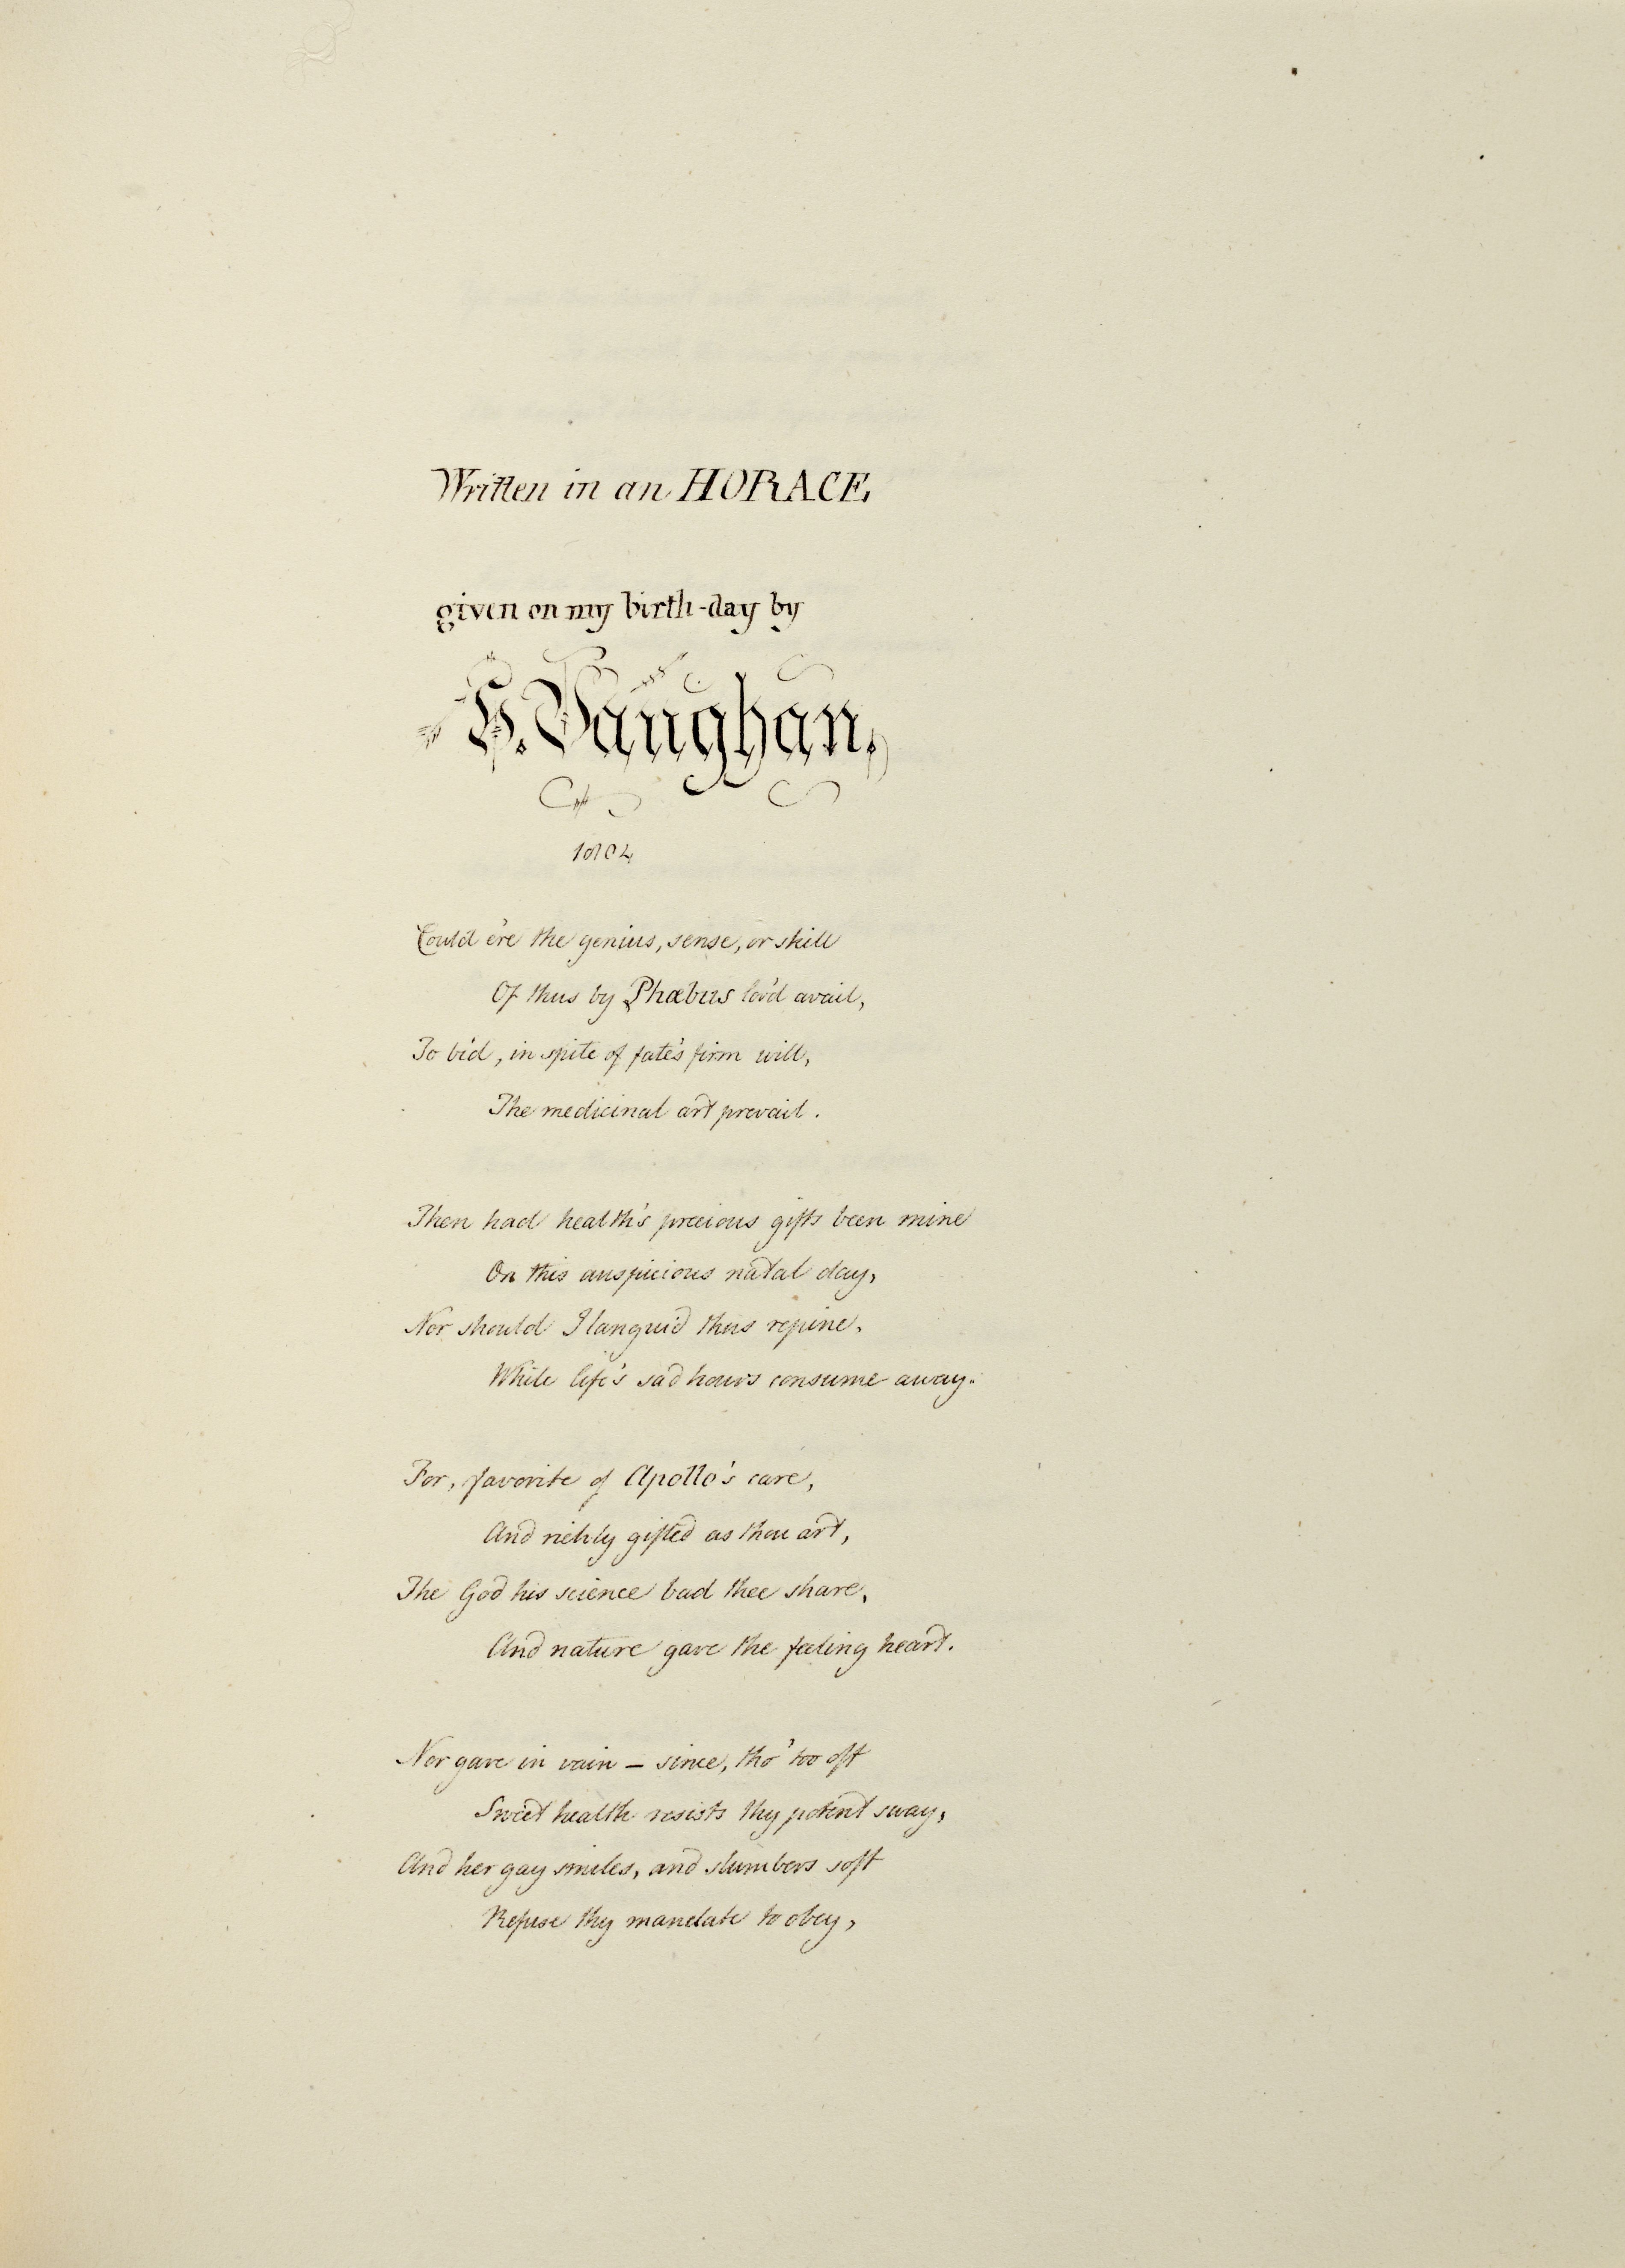 Written in an HORACE,
given on my birth-day by
H. Vaughan,
1804
Could e're the genius, sense, or skill
Of thus by Phœbus lov'd avail,
To bid, in spite of fate's firm will,
The medicinal art prevail.
Then had health's precious gifts been mine
On this auspicious natal day,
Nor should I languid thus repine,
While life's sad hours consume away.
For, favorite of Apollo's care,
And richly gifted as thou art,
The God his science bad thee share,
And nature gave the feeling heart.
Nor gave in vain – since, tho' too oft
Sweet health resists thy potent sway,
And her gay smiles, and slumbers soft
Refuse thy mandate to obey,